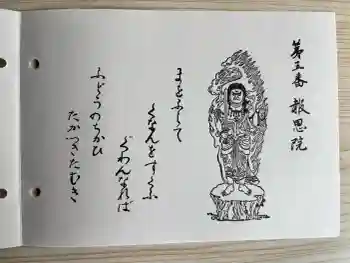 第三番 報恩院
まどふして
くなんをすくふ
ぐわんなれば
ふどうのちかひ
たかつきたむき